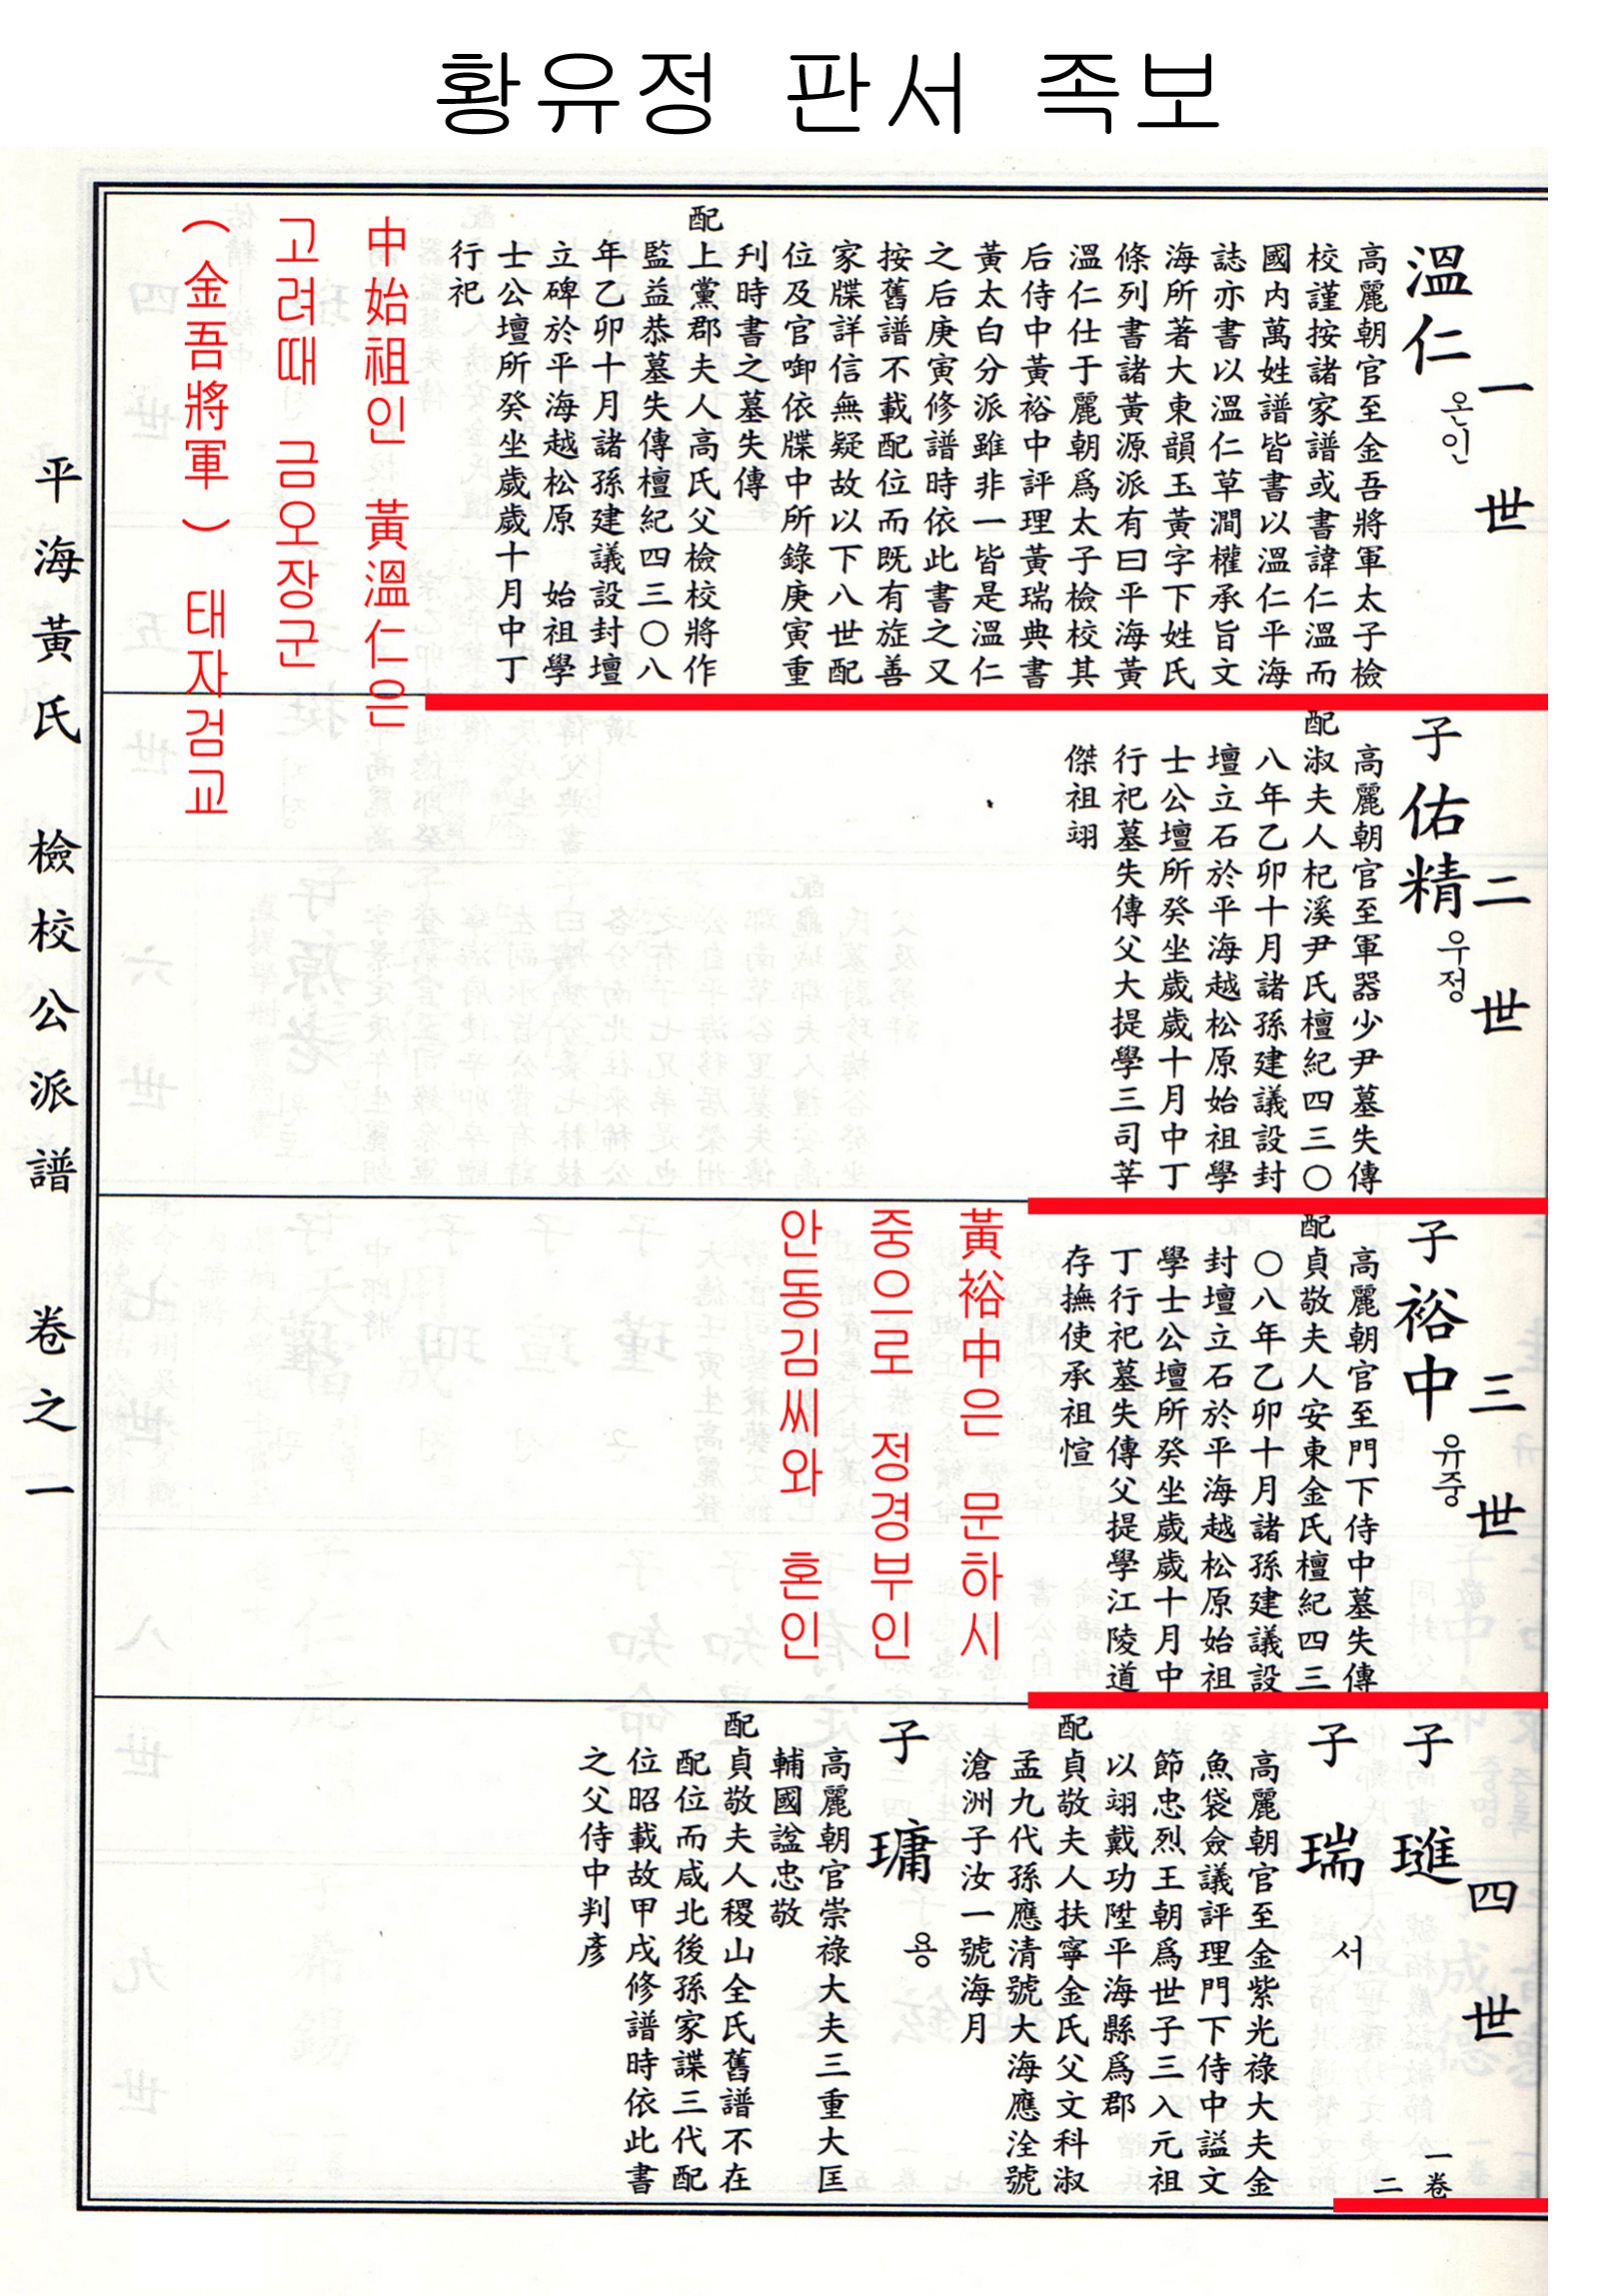 황유정 판서 족보
一世
溫仁 온인
高麗朝官至金吾將軍太子檢
校謹按諸家譜或書諱仁溫而
國内萬姓譜皆書以溫仁平海
誌亦書以溫仁草澗權承旨文
海所著大東韻玉黃字下姓氏
條列書諸黃源派有曰平海黃
溫仁仕于麗朝爲太子檢校其
后侍中黃裕中評理黃瑞典書
黃太白分派雖非一皆是溫仁
之后庚寅修譜時依此書之又
按舊譜不載配位而既有㫌善
家牒詳信無疑故以下八世配
位及官啣依牒中所錄庚寅重
刋時書之墓失傳
配上黨郡夫人高氏父檢校將作
監益恭墓失傳檀紀四三〇八
年乙卯十月諸孫建議設封壇
立碑於平海越松原 始祖學
士公壇所癸坐歲歲十月中丁
行祀
中始祖인 黃溫仁은
고려때 금오장군
(金吾將軍) 태자검교
二世
子佑精 우정
高麗朝官至軍器少尹墓失傳
配淑夫人杞溪尹氏檀紀四三〇
八年乙卯十月諸孫建議設封
壇立石於平海越松原始祖學
士公壇所癸坐歲歲十月中丁
行祀墓失傳父大提學三司莘
傑祖翊
三世
子裕中 유중
高麗朝官至門下侍中墓失傳
配貞敬夫人安東金氏檀紀四三
〇八年乙卯十月諸孫建議設
封壇立石於平海越松原始祖
學士公壇所癸坐歲歲十月中
丁行祀墓失傳父提學江陵道
存撫使承祖愃
黃裕中은 문하시
중으로 정경부인
안동김씨와 혼인
四世
子璡
一卷
二
子瑞 서
高麗朝官至金紫光祿大夫金
魚袋僉議評理門下侍中謚文
節忠烈王朝爲世子三入元祖
以翊戴功陞平海縣爲郡
配貞敬夫人扶寧金氏父文科淑
孟九代孫應清號大海應洤號
滄洲子汝一號海月
子㻿 용
高麗朝官崇祿大夫三重大匡
輔國諡忠敬
配貞敬夫人稷山全氏舊譜不在
配位而咸北後孫家諜三代配
位昭載故甲戌修譜時依此書
之父侍中判彥
平海黃氏 檢校公派譜 卷之一